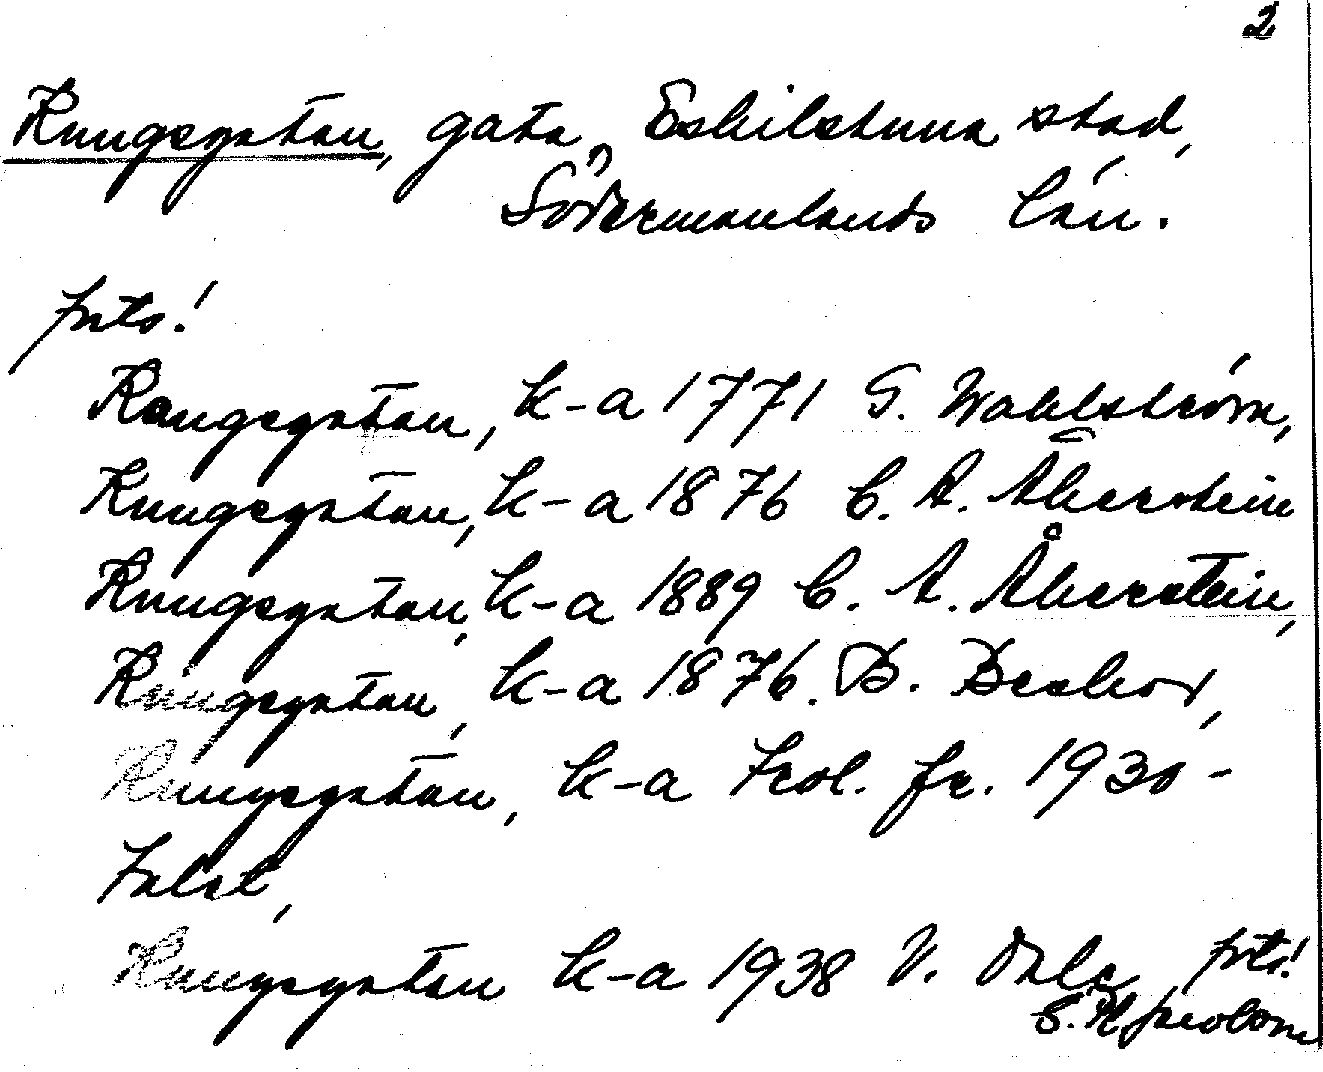 2
Kungsgatan, gata, Eskilstuna stad,
Södermanlands län.
forts!
Kungsgatan, k-a 1771 G. Wahlström,
Kungsgatan, k-a 1876 C. A. Åberstein
Kungsgatan, k-a 1889 C. A. Åberstein,
Kungsgatan, k-a 1876. B. Beskow,
Kungsgatan, k-a Trol. fr. 1930-
Talet,
Kungsgatan k-a 1938 V. forts!